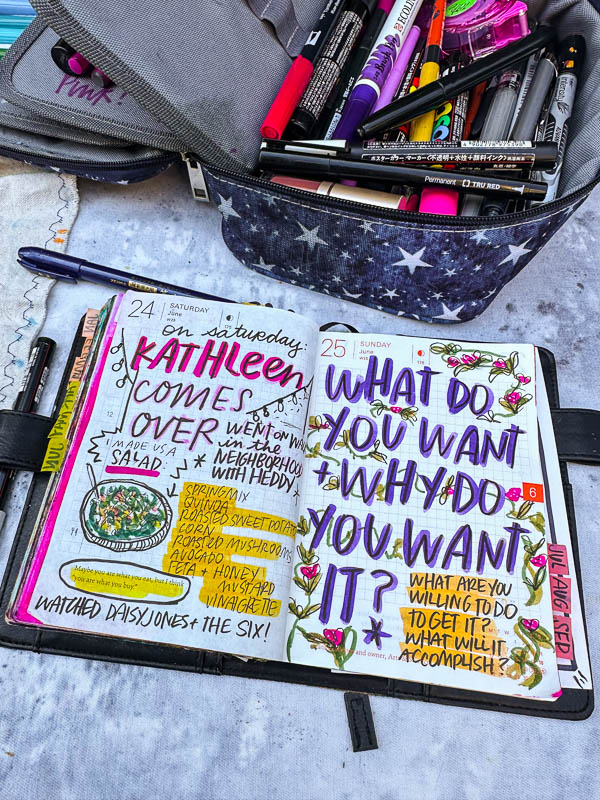 Pink?
ECOLIN
Permanent TRU RED
24 SATURDAY
June
w25
175
on saturday:
KATHLeen
COMES
OVER
MADE US A
SALAD
* WENT ON WA
in the
NEIGHBORHOO
WITH HEDDY *
12
SPRING MIX
QUINOA
ROASTED SWEET POTATO
CORN
ROASTED MUSHROOMS
AVOCADO
FETA + HONEY
MUSTARD
VINAIGRETTE
Maybe you are what you eat, but I think
you are what you buy."
WATCHED DAISY JONES + THE SIX!
25 SUNDAY
June
w25
176
WHAT DO
YOU WANT
+ WHY DO
YOU WANT
IT?
*
WHAT ARE YOU
WILLING TO DO
TO GET IT?
WHAT WILL IT
ACCOMPLISH?
and owner, Art
6
JUL AUG SEP
11